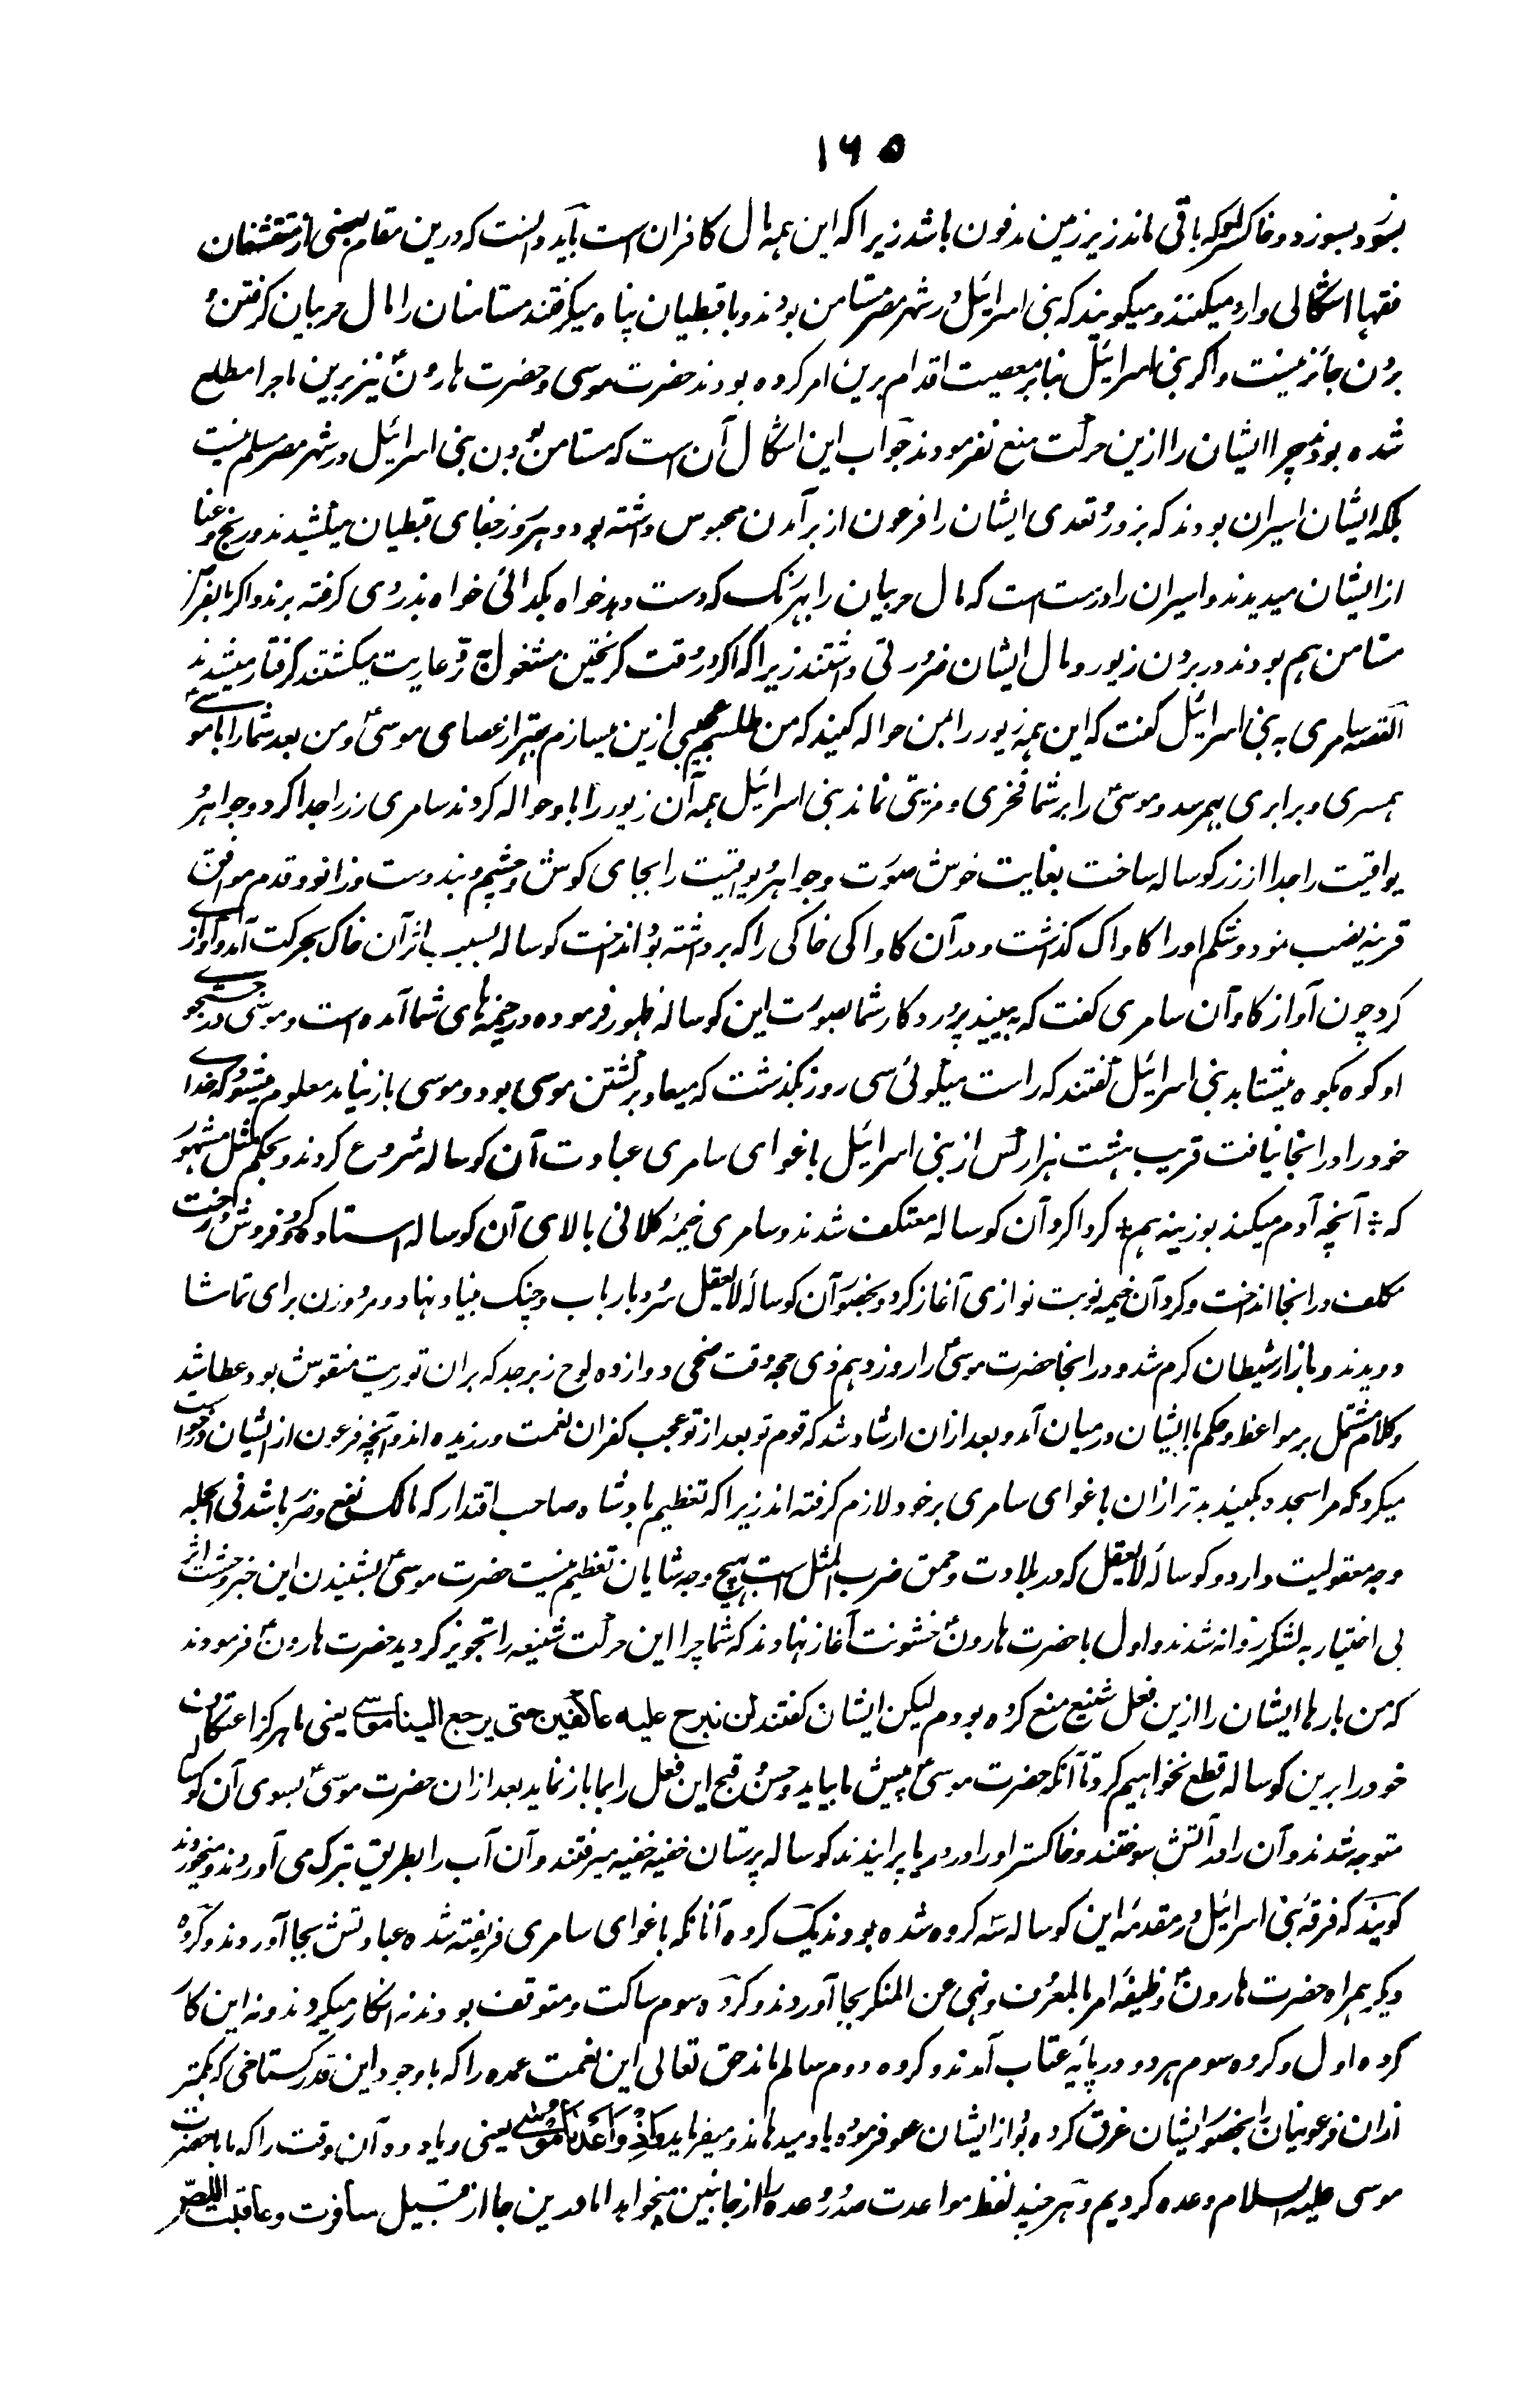 ۱۶۵
بشود بسوزد و خاکستر او که باقی ماند زیر زمین مدفون باشد زیرا که این همه مال کافران است باید دانست که درین مقام بعضی از متقشفان
فقها اشکالی وارد میکنند و میگویند که بنی اسرائیل در شهر مصر مستامن بودند و با قبطیان پناه میگرفتند مستامنان را مال حربیان گرفتن و
بردن جائز نیست و اگر بنی اسرائیل بنا بر معصیت اقدام برین امر کرده بودند حضرت موسی و حضرت هارونؑ نیز برین ماجرا مطلع
شده بودند چرا ایشان را ازین حرکت منع نفرمودند جواب این اشکال آن است که مستامن بودن بنی اسرائیل در شهر مصر مسلم نیست
بلکه ایشان اسیران بودند که بزور و تعدی ایشان را فرعون از برآمدن محبوس داشته بود و هر روز جفای قبطیان میکشیدند و رنج و عنا
از ایشان میدیدند و اسیران را درست است که مال حربیان را بهر رنگ که دست دهد خواه بگدائی خواه بدزدی گرفته برند و اگر بالفرض
مستامن هم بودند در بردن زیور و مال ایشان ضرورتی داشتند زیرا که اگر در وقت گریختن مشغول رد عاریت میگشتند گرفتار میشدند
القصه سامری به بنی اسرائیل گفت که این همه زیور را بمن حواله کنید که من طلسم عجیبی ازین میسازم بهتر از عصای موسیؑ و من بعد شما را با موسی
همسری و برابری بهم رسد و موسیؑ را بر شما فخری و مزیتی نماند بنی اسرائیل همه آن زیور را باو حواله کردند سامری زر را جدا کرد و جواهر و
یواقیت را جدا از زر گوساله ساخت بغایت خوش صورت و جواهر و یواقیت را بجای گوش و چشم و بند دست و زانو و قدم موافق
قرینه نصب نمود و شکم او را کاواک گذاشت و در آن کاواکی خاکی را که برداشته بود انداخت گوساله بسبب اثر آن خاک بحرکت آمد و آوازی
کرد چون آواز گاو آن سامری گفت که به بینید پروردگار شما بصورت این گوساله ظهور فرموده در خیمه های شما آمده است و موسی در جستجوی
او کوه بکوه میشتابد بنی اسرائیل گفتند که راست میگوئی سی روز بگذشت که میعاد برگشتن موسی بود و موسی باز نیامد معلوم میشود که خدای
خود را در انجا نیافت قریب هشت هزار کس از بنی اسرائیل باغوای سامری عبادت آن گوساله شروع کردند و بحکم مثل مشهور
که آنچه آدم میکند بوزینه هم گردا گرد آن گوساله معتکف شدند و سامری خیمهٔ کلانی بالای آن گوساله استاده کرد و فروش و رخت
مکلف در انجا انداخت و گرد آن خیمه نوبت نوازی آغاز کرد و بحضور آن گوسالهٔ لایعقل سرود با رباب و چنگ بنیاد نهاد و مرد و زن برای تماشا
دویدند و بازار شیطان گرم شد و در انجا حضرت موسیؑ را روز دهم ذی حجه وقت ضحی دوازده لوح زبرجد که بران توریت منقوش بود عطا شد
و کلام مشتمل بر مواعظ و حکم با ایشان درمیان آمد و بعد ازان ارشاد شد که قوم تو بعد از تو عجب کفران نعمت ورزیده اند و آنچه فرعون از ایشان درخواست
میکرد که مرا سجده بکنید بدتر ازان باغوای سامری بر خود لازم گرفته اند زیرا که تعظیم بادشاه صاحب اقتدار که مالک نفع و ضرر باشد فی الجمله
وجه معقولیت دارد و گوسالهٔ لایعقل که در بلادت و حمق ضرب المثل است بهیچ وجه شایان تعظیم نیست حضرت موسیؑ بشنیدن این خبر وحشت اثر
بی اختیار به لشکر روانه شدند و اول با حضرت هارونؑ خشونت آغاز نهادند که شما چرا این حرکت شنیعه را تجویز کردید حضرت هارونؑ فرمودند
که من بارها ایشان را ازین فعل شنیع منع کرده بودم لیکن ایشان گفتند لن نبرح علیه عاکفین حتی یرجع الینا موسی یعنی ما هرگز اعتکاف
خود را برین گوساله قطع نخواهیم کرد تا آنکه حضرت موسیؑ پیش ما بیاید و حسن و قبح این فعل را بما باز نماید بعد ازان حضرت موسیؑ بسوی آن گوساله
متوجه شدند و آن را در آتش سوختند و خاکستر او را در دریا پرانیدند گوساله پرستان خفیه خفیه میرفتند و آن آب را بطریق تبرک می آوردند و میخوردند
گویند که فرقهٔ بنی اسرائیل در مقدمهٔ این گوساله سه گروه شده بودند یک گروه آنانکه باغوای سامری فریفته شده عبادتش بجا آوردند و گروه
دیگر همراه حضرت هارونؑ وظیفهٔ امر بالمعروف و نهی عن المنکر بجا آوردند و گروه سوم ساکت و متوقف بودند نه انکار میکردند و نه این کار
گروه اول و گروه سوم هر دو در پایهٔ عتاب آمدند و گروه دوم سالم ماند حق تعالی این نعمت عمده را که با وجود این قدر گستاخی که بکمتر
ازان فرعونیان را بحضور ایشان غرق کرده بود از ایشان عفو فرموده یاد میدهاند و میفرماید وَاِذْ وَاعَدْنَا مُوسٰی یعنی و یاد ده آن وقت را که ما با حضرت
موسی علیه السلام وعده کردیم و هر چند لفظ مواعدت صدور وعده را از جانبین میخواهد اما درین جا از قبیل سافرت و عاقبت اللص